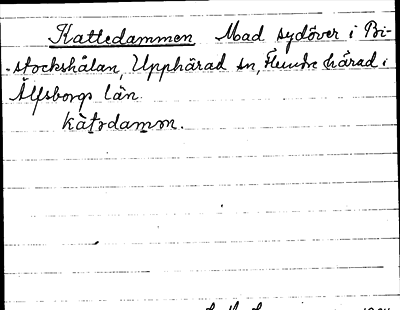 Kattedammen Mad sydöver i Bi-
-stockshålan, Upphärad sn, Flundre härad i
Älfsborgs län.
kàtədamən.